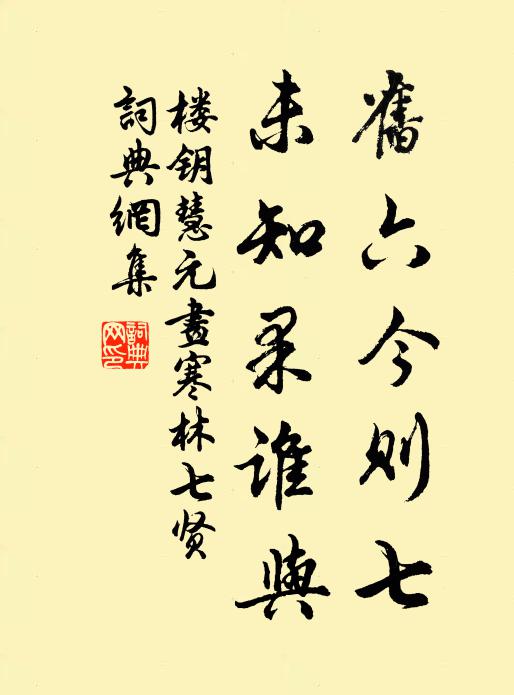 舊六今则七
未知果谁與
楼钥慧元畫寒林七贤
詞典網集
詞典網印